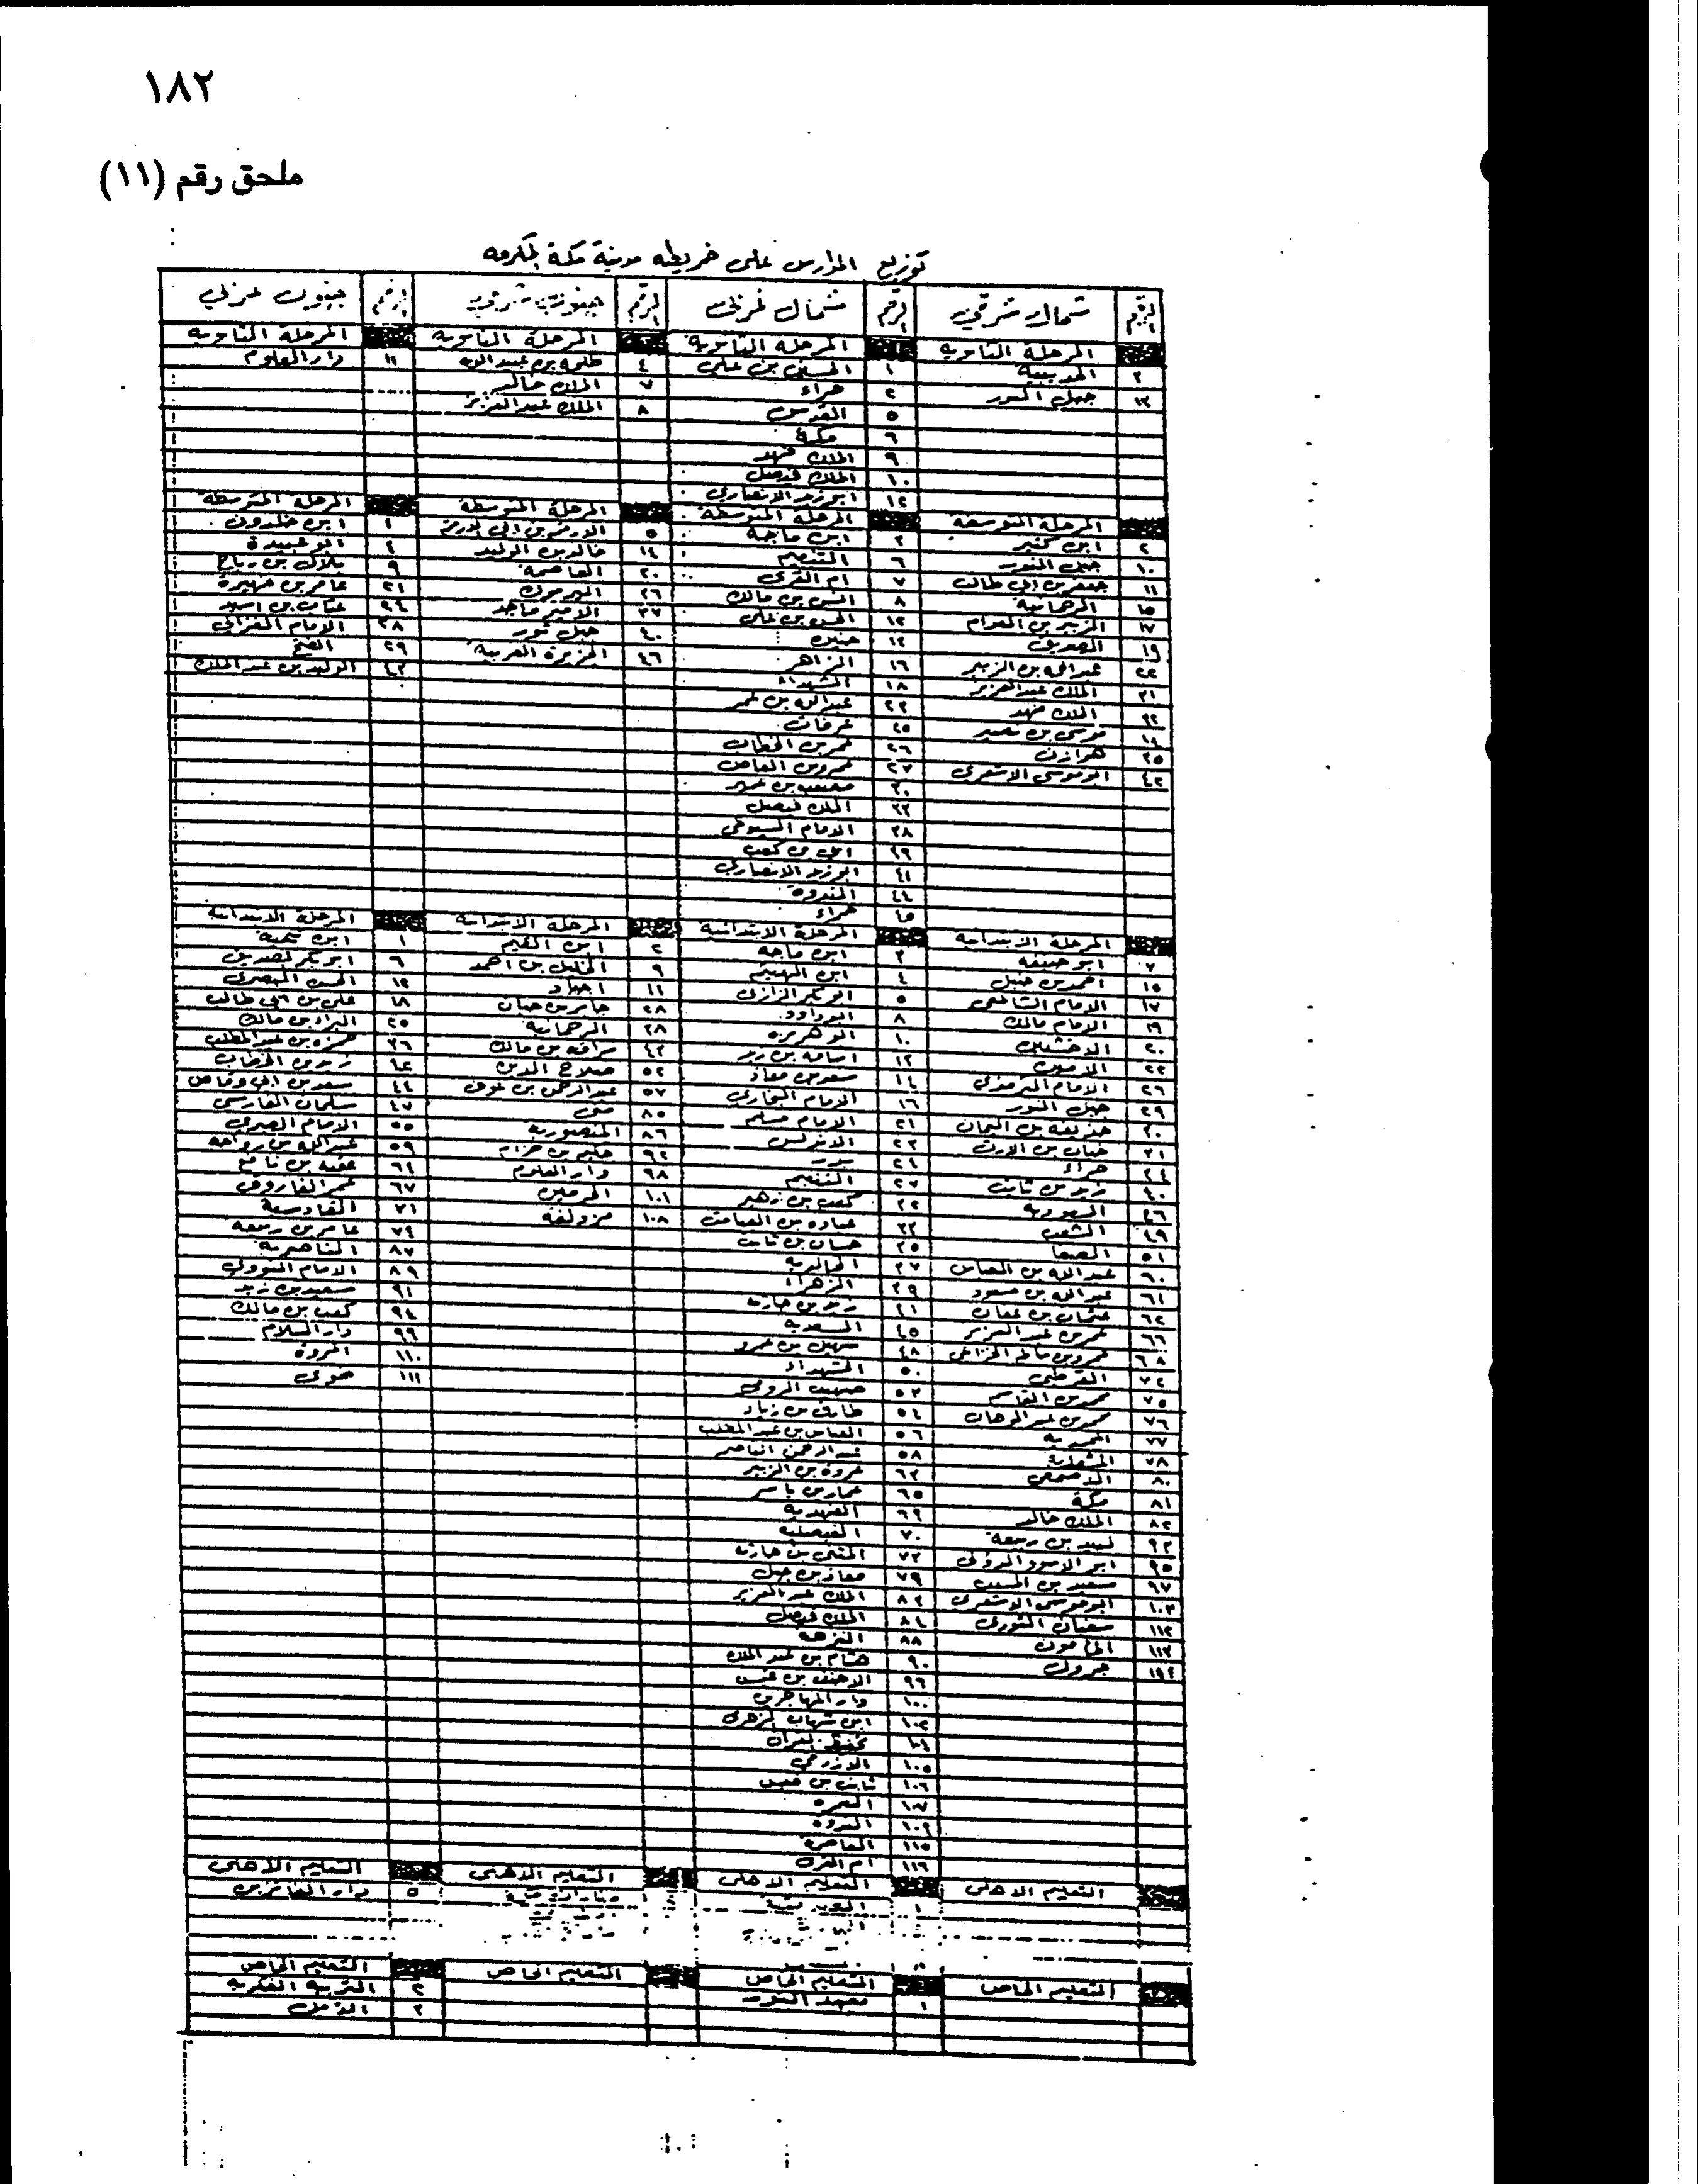 ١٨٢
ملحق رقم (١١)
توزيع المدارس على خريطه مدينة مكة المكرمه
الرقم شمال شرقي الرقم شمال غربي الرقم جنوب شرقي الرقم جنوب غربي
المرحلة الثانوية المرحلة الثانوية المرحلة الثانوية المرحلة الثانوية
٣ الحديبية ١ الحسين بن علي ٤ طلحه بن عبيدالله ١١ دار العلوم
١٣ جبل النور ٢ حراء ٧ الملك خالد
٥ القدس ٨ الملك عبدالعزيز
٦ مكة
٩ الملك فهد
١٠ الملك فيصل
١٢ ابوذر الانصاري
المرحلة المتوسطة المرحلة المتوسطة المرحلة المتوسطة المرحلة المتوسطة
٢ ابن كثير ٣ ابن ماجة ٥ الارقم بن ابي الارقم ١ ابن خلدون
١٠ جبل النور ٦ التنعيم ١٤ خالد بن الوليد ٤ ابو عبيدة
١١ جعفر بن ابي طالب ٧ ام القرى ٢٠ العاصمة ٩ بلال بن رباح
١٥ الرحمانية ٨ انس بن مالك ٢٦ اليرموك ٢١ عامر بن فهيرة
١٧ الزبير بن العوام ١٢ الحسن بن علي ٣٧ الامير ماجد ٢٤ عتاب بن اسيد
١٩ الصديق ١٣ حنين ٤٠ جبل ثور ٢٨ الامام الغزالي
٢٢ عبدالله بن الزبير ١٦ الزاهر ٤٦ الجزيرة العربية ٢٩ الفتح
٣١ الملك عبدالعزيز ١٨ الشهداء ٤٣ الوليد بن عبدالملك
٣٢ الملك فهد ٢٣ عبدالله بن عمر
موسى بن نصير ٢٥ عرفات
٣٥ هوازن عمر بن الخطاب
٤٢ ابو موسى الاشعري ٢٧ عمرو بن العاص
٣٠ مصعب بن عمير
٣٣ الملك فيصل
٣٨ الامام السيوطي
٣٩ ابي بن كعب
٤١ ابوذر الانصاري
٤٤ الندوة
٤٥ حراء
المرحلة الابتدائية المرحلة الابتدائية المرحلة الابتدائية المرحلة الابتدائية
٧ ابو حنيفه ٣ ابن ماجه ٢ ابن القيم ١ ابن تيمية
١٥ احمد بن حنبل ٤ ابن الهيثم ٩ الخليل بن احمد ٦ ابو بكر الصديق
١٧ الامام الشافعي ٥ ابو بكر الرازي ١١ اجياد ١٣ الحسن البصري
١٩ الامام مالك ٨ ابو داود ٢٨ جابر بن حيان ١٨ علي بن ابي طالب
٢٠ الاخشبين ١٠ ابو هريره ٣٨ الرحمانيه ٢٥ البراء بن مالك
٢٢ ١٢ اسامه بن زيد ٤٣ سراقه بن مالك ٣٦ حمزه بن عبدالمطلب
٢٦ الامام الترمذي ١٤ سعد بن معاذ ٥٢ صلاح الدين ٤٢ زيد بن الخطاب
٢٩ جبل النور ١٦ الامام البخاري ٥٧ عبدالرحمن بن عوف ٤٤ سعد بن ابي وقاص
٣٠ حذيفه بن اليمان ٢١ الامام مسلم ٨٥ منى ٤٧ سلمان الفارسي
٣١ خباب بن الارت ٢٣ الاندلس ٨٦ المنصوريه ٥٥
٣٤ حراء ٢٤ بدر ٩٢ حكيم بن حزام ٥٩ عبدالله بن رواحه
٤٠ زيد بن ثابت ٢٧ التنعيم ٩٨ دار العلوم ٦٤ عقبه بن نافع
٤٦ السعوديه ٣٢ كعب بن زهير ١٠١ الحرمين ٦٧ عمر الفاروق
٤٩ الشعب ٣٣ عباده بن الصامت ١٠٨ مزدلفه ٧١ القادسية
٥١ الصفا ٣٥ حسان بن ثابت ٧٤ عامر بن ربيعه
٦٠ عبدالله بن العباس ٣٧ الخالديه ٨٧ الناصريه
٦١ عبدالله بن مسعود ٣٩ الزهراء ٨٩ الامام النووي
٦٢ عثمان بن عفان ٤١ زيد بن حارثه ٩١ سعيد بن زيد
٦٦ عمر بن عبدالعزيز ٤٥ السعديه ٩٤ كعب بن مالك
٦٨ عمرو بن سالم الخزاعي ٤٨ سهيل بن عمرو ٩٩ دار السلام
٧٢ القرطبي ٥٠ الشهداء ١١٠ المروة
٧٥ محمد بن القاسم ٥٣ صهيب الرومي ١١١ طوى
٧٦ محمد بن عبدالوهاب ٥٤ طارق بن زياد
٧٧ المحمديه ٥٦ العباس بن عبدالمطلب
٧٨ ٥٨ عبدالرحمن الناصر
٨٠ الاصمعي ٦٣ عروة بن الزبير
٨١ مكة ٦٥ عمار بن ياسر
٨٢ الملك خالد ٦٩ الفهديه
٩٣ لبيد بن ربيعة ٧٠ الفيصليه
٩٥ ابو الاسود الدؤلي ٧٣ المثنى بن حارثه
٩٧ سعيد بن المسيب ٧٩ معاذ بن جبل
١٠٣ ابو موسى الاشعري ٨٣ الملك عبدالعزيز
١١٢ سفيان الثوري ٨٤ الملك فيصل
١١٣ المأمون ٨٨ النزهه
جرول ٩٠ هشام بن عبدالملك
٩٦ الاحنف بن قيس
١٠٠ دار المهاجرين
١٠٢ ابن شهاب الزهري
تحفيظ القران
١٠٥ الازرقي
١٠٦ ثابت بن قيس
١٠٧ العمره
١٠٩ الندوه
١١٥ العاصمة
١١٦ ام القرى
التعليم الاهلى التعليم الاهلى التعليم الاهلى التعليم الاهلى
١ ٥ دار الفائزين
التعليم الخاص التعليم الخاص التعليم الخاص التعليم الخاص
١ معهد النور ٢ التربيه الفكريه
٣ الامل